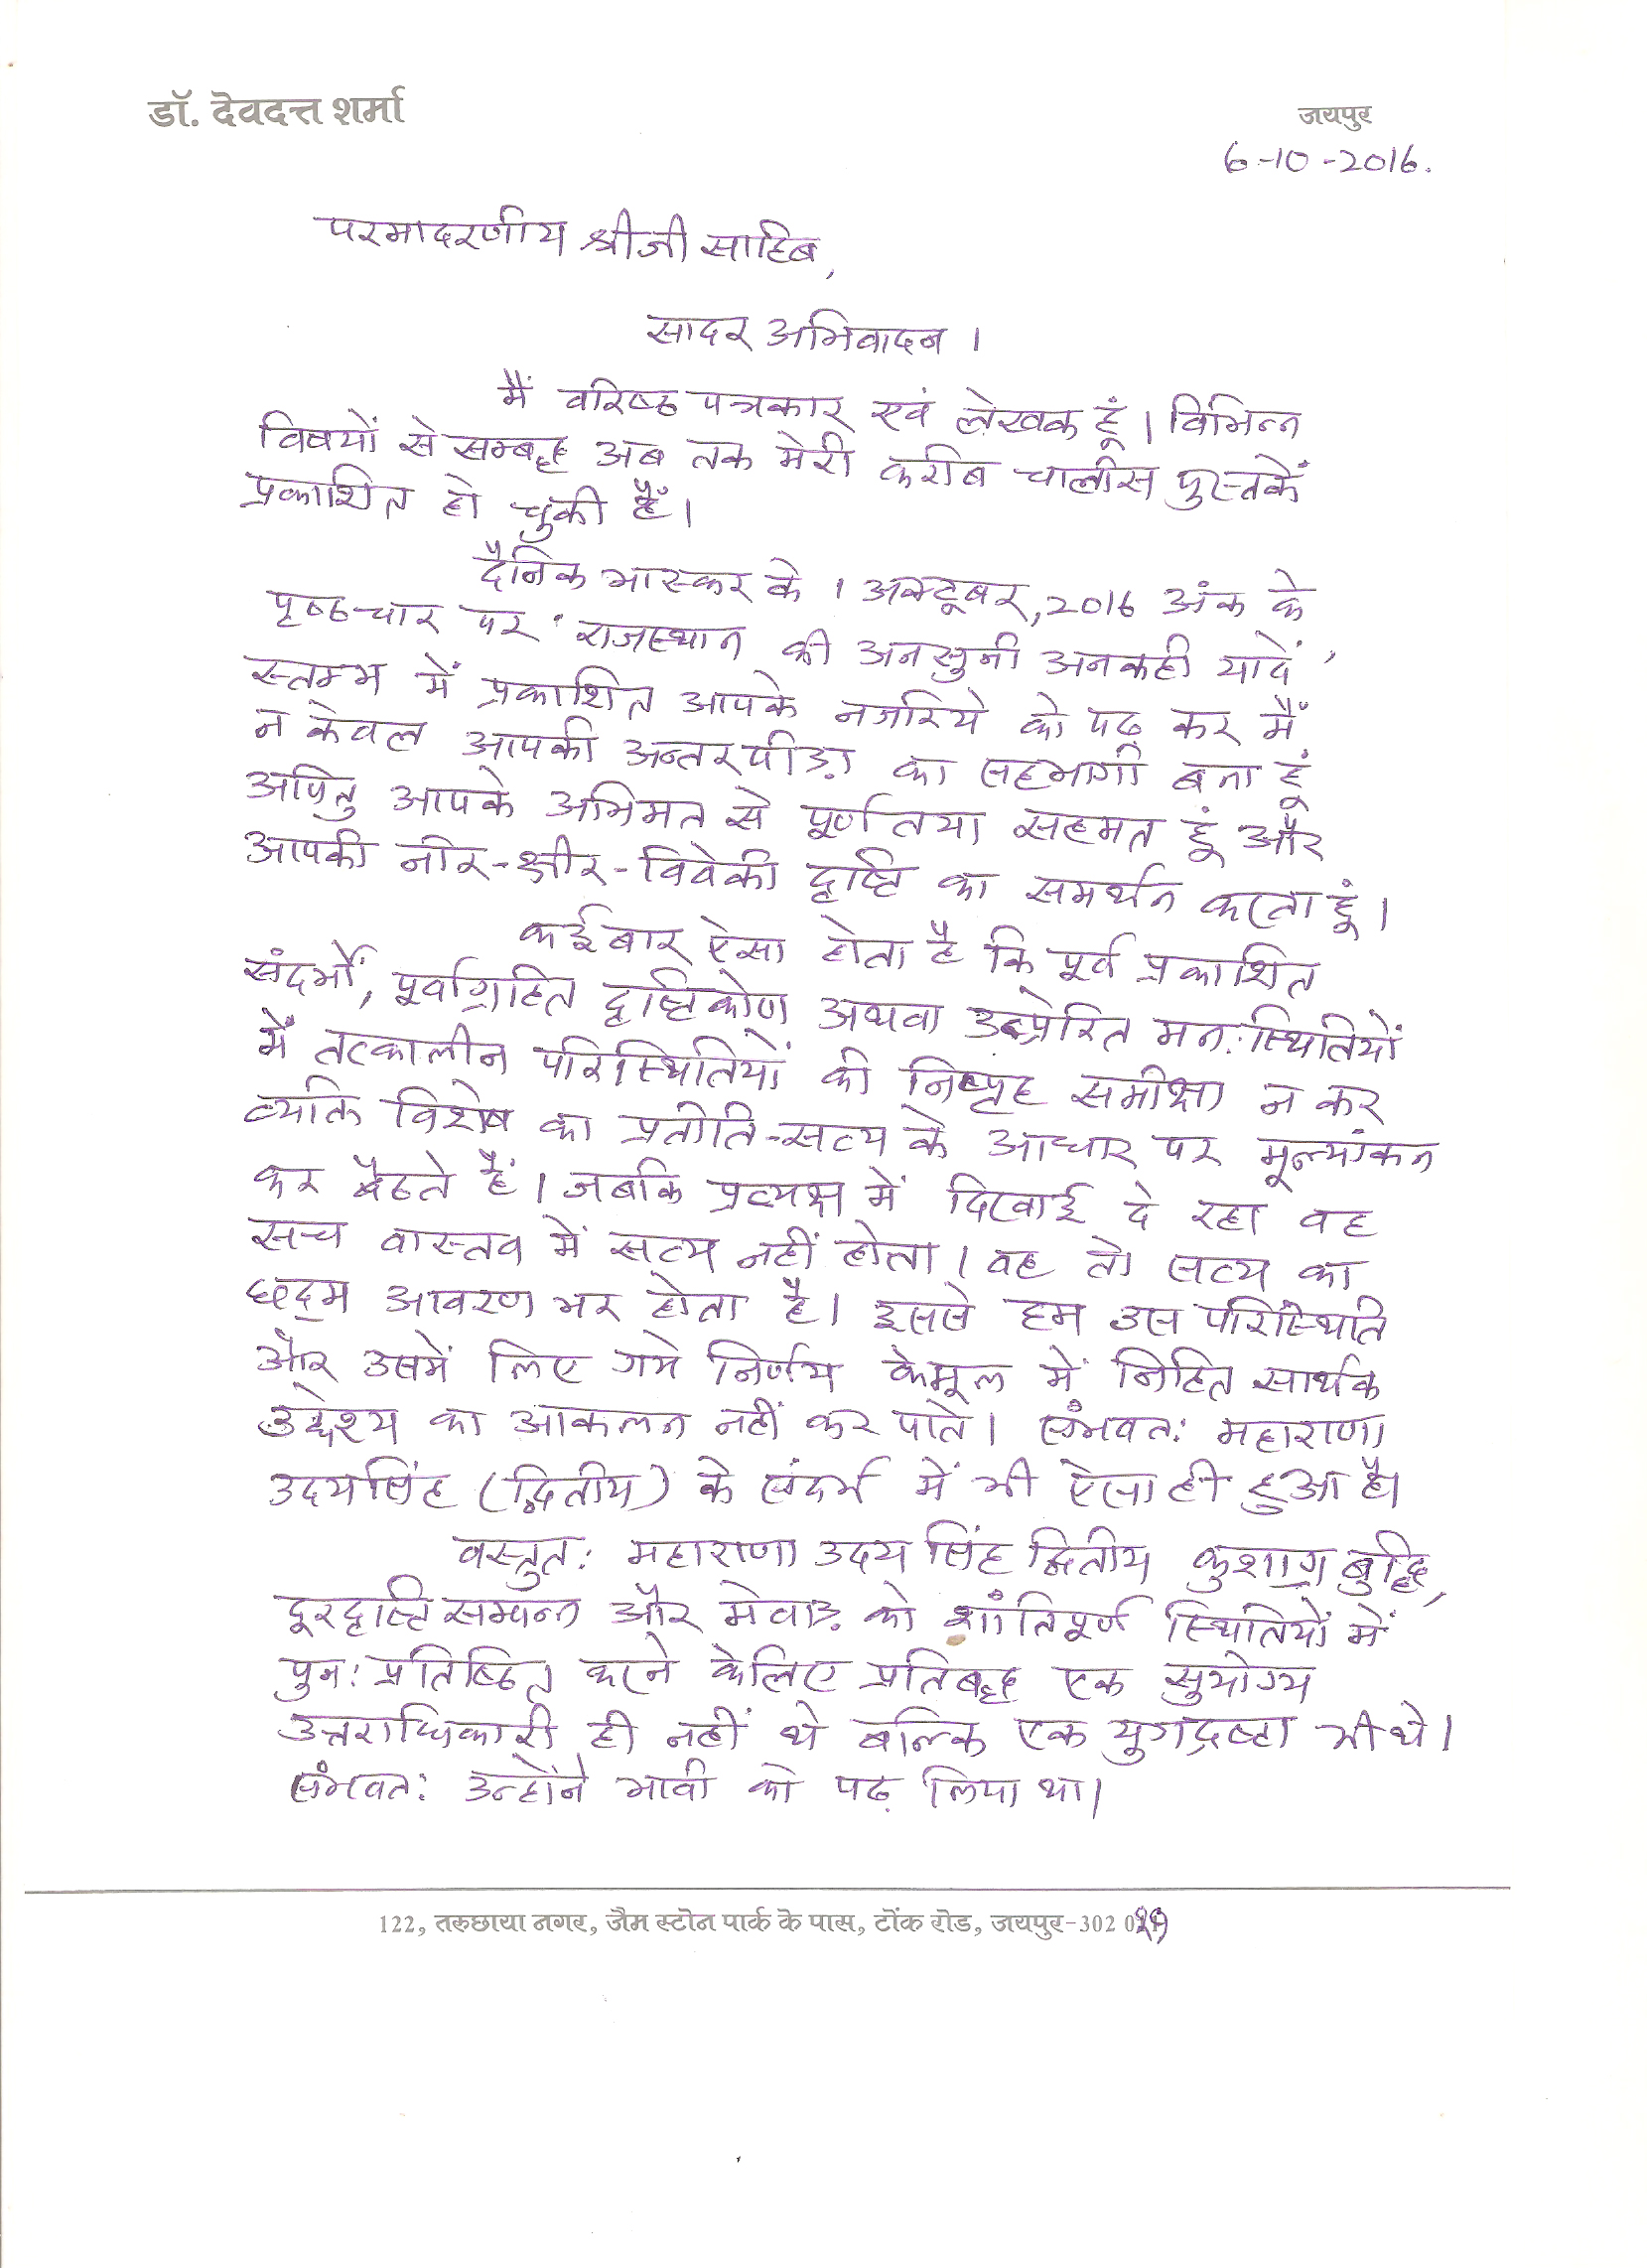 डॉ. देवदत्त शर्मा
जयपुर
6-10-2016.
परमादरणीय श्रीजी साहिब,
सादर अभिवादन ।
मैं वरिष्ठ पत्रकार एवं लेखक हूं। विभिन्न
विषयों से सम्बद्ध अब तक मेरी करीब चालीस पुस्तकें
प्रकाशित हो चुकी हैं।
दैनिक भास्कर के 1 अक्टूबर, 2016 अंक के
पृष्ठ चार पर 'राजस्थान की अनसुनी अनकही यादें'
स्तम्भ में प्रकाशित आपके नजरिये को पढ़ कर मैं
न केवल आपकी अन्तरपीड़ा का सहभागी बना हूं
अपितु आपके अभिमत से पूर्णतया सहमत हूं और
आपकी नीर-क्षीर-विवेकी दृष्टि का समर्थन करता हूं।
कई बार ऐसा होता है कि पूर्व प्रकाशित
संदर्भों, पूर्वाग्रहित दृष्टिकोण अथवा उत्प्रेरित मन:स्थितियों
में तत्कालीन परिस्थितियों की निष्पृह समीक्षा न कर
व्यक्ति विशेष का प्रतीति-सत्य के आधार पर मूल्यांकन
कर बैठते हैं। जबकि प्रत्यक्ष में दिखाई दे रहा वह
सच वास्तव में सत्य नहीं होता। वह तो सत्य का
छद्म आवरण भर होता है। इससे हम उस परिस्थिति
और उसमें लिए गये निर्णय के मूल में निहित सार्थक
उद्देश्य का आकलन नहीं कर पाते। संभवत: महाराणा
उदयसिंह (द्वितीय) के संदर्भ में भी ऐसा ही हुआ है।
वस्तुत: महाराणा उदय सिंह द्वितीय कुशाग्र बुद्धि,
दूरदृष्टि सम्पन्न और मेवाड़ को शांतिपूर्ण स्थितियों में
पुन: प्रतिष्ठित करने के लिए प्रतिबद्ध एक सुयोग्य
उत्तराधिकारी ही नहीं थे बल्कि एक युगद्रष्टा भी थे।
संभवत: उन्होंने भावी को पढ़ लिया था।
122, तरुछाया नगर, जैम स्टोन पार्क के पास, टोंक रोड, जयपुर-302 029